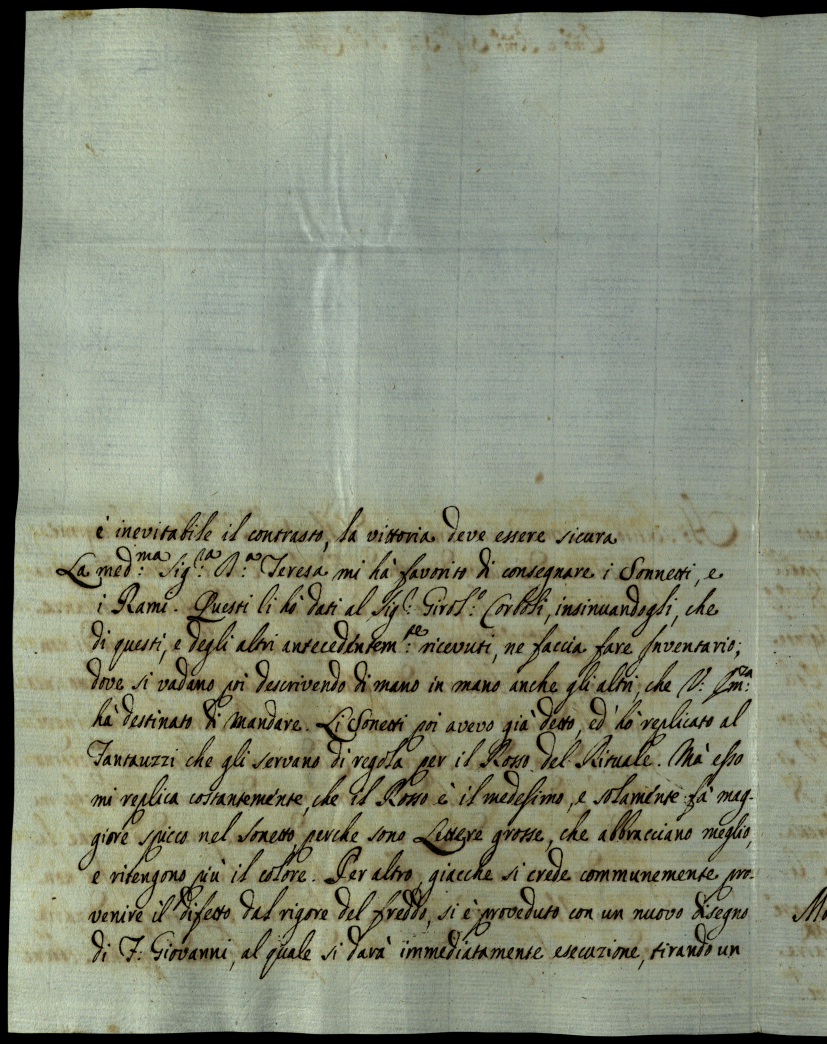 è inevitabile il contrasto, la vittoria deve essere sicura
La med:ma Sig:ra B:a Teresa mi hà favorito di consegnare i Sonnetti, e
i Rami. Questi li hò dati al Sig:r Girol:o Corboli, insinuandogli, che
di questi, e degli altri antecedentem:te ricevuti, ne faccia fare Inventario;
dove si vadano poi descrivendo di mano in mano anche gli altri, che V: Em:za
hà destinato di mandare. Li Sonetti poi avevo già detto, ed hò replicato al
Fantauzzi che gli servano di regola per il Rosso del Rituale. Mà esso
mi replica costantemente, che il Rosso è il medesimo, e solamente fà mag-
giore spicco nel Sonetto, perche sono Lettere grosse, che abbracciano meglio,
e ritengono più il colore. Per altro, giacche si crede communemente pro-
venire il difetto dal rigore del freddo, si è proveduto con un nuovo disegno
di F: Giovanni, al quale si darà immediatamente esecuzione, tirando un